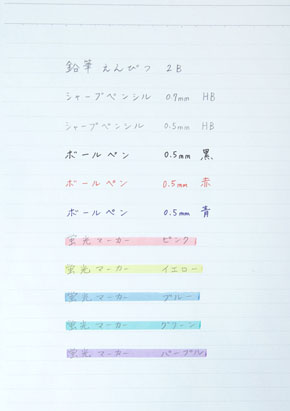 鉛筆 えんぴつ 2B
シャープペンシル 0.7mm HB
シャープペンシル 0.5mm HB
ボールペン 0.5mm 黒
ボールペン 0.5mm 赤
ボールペン 0.5mm 青
蛍光マーカー ピンク
蛍光マーカー イエロー
蛍光マーカー ブルー
蛍光マーカー グリーン
蛍光マーカー パープル